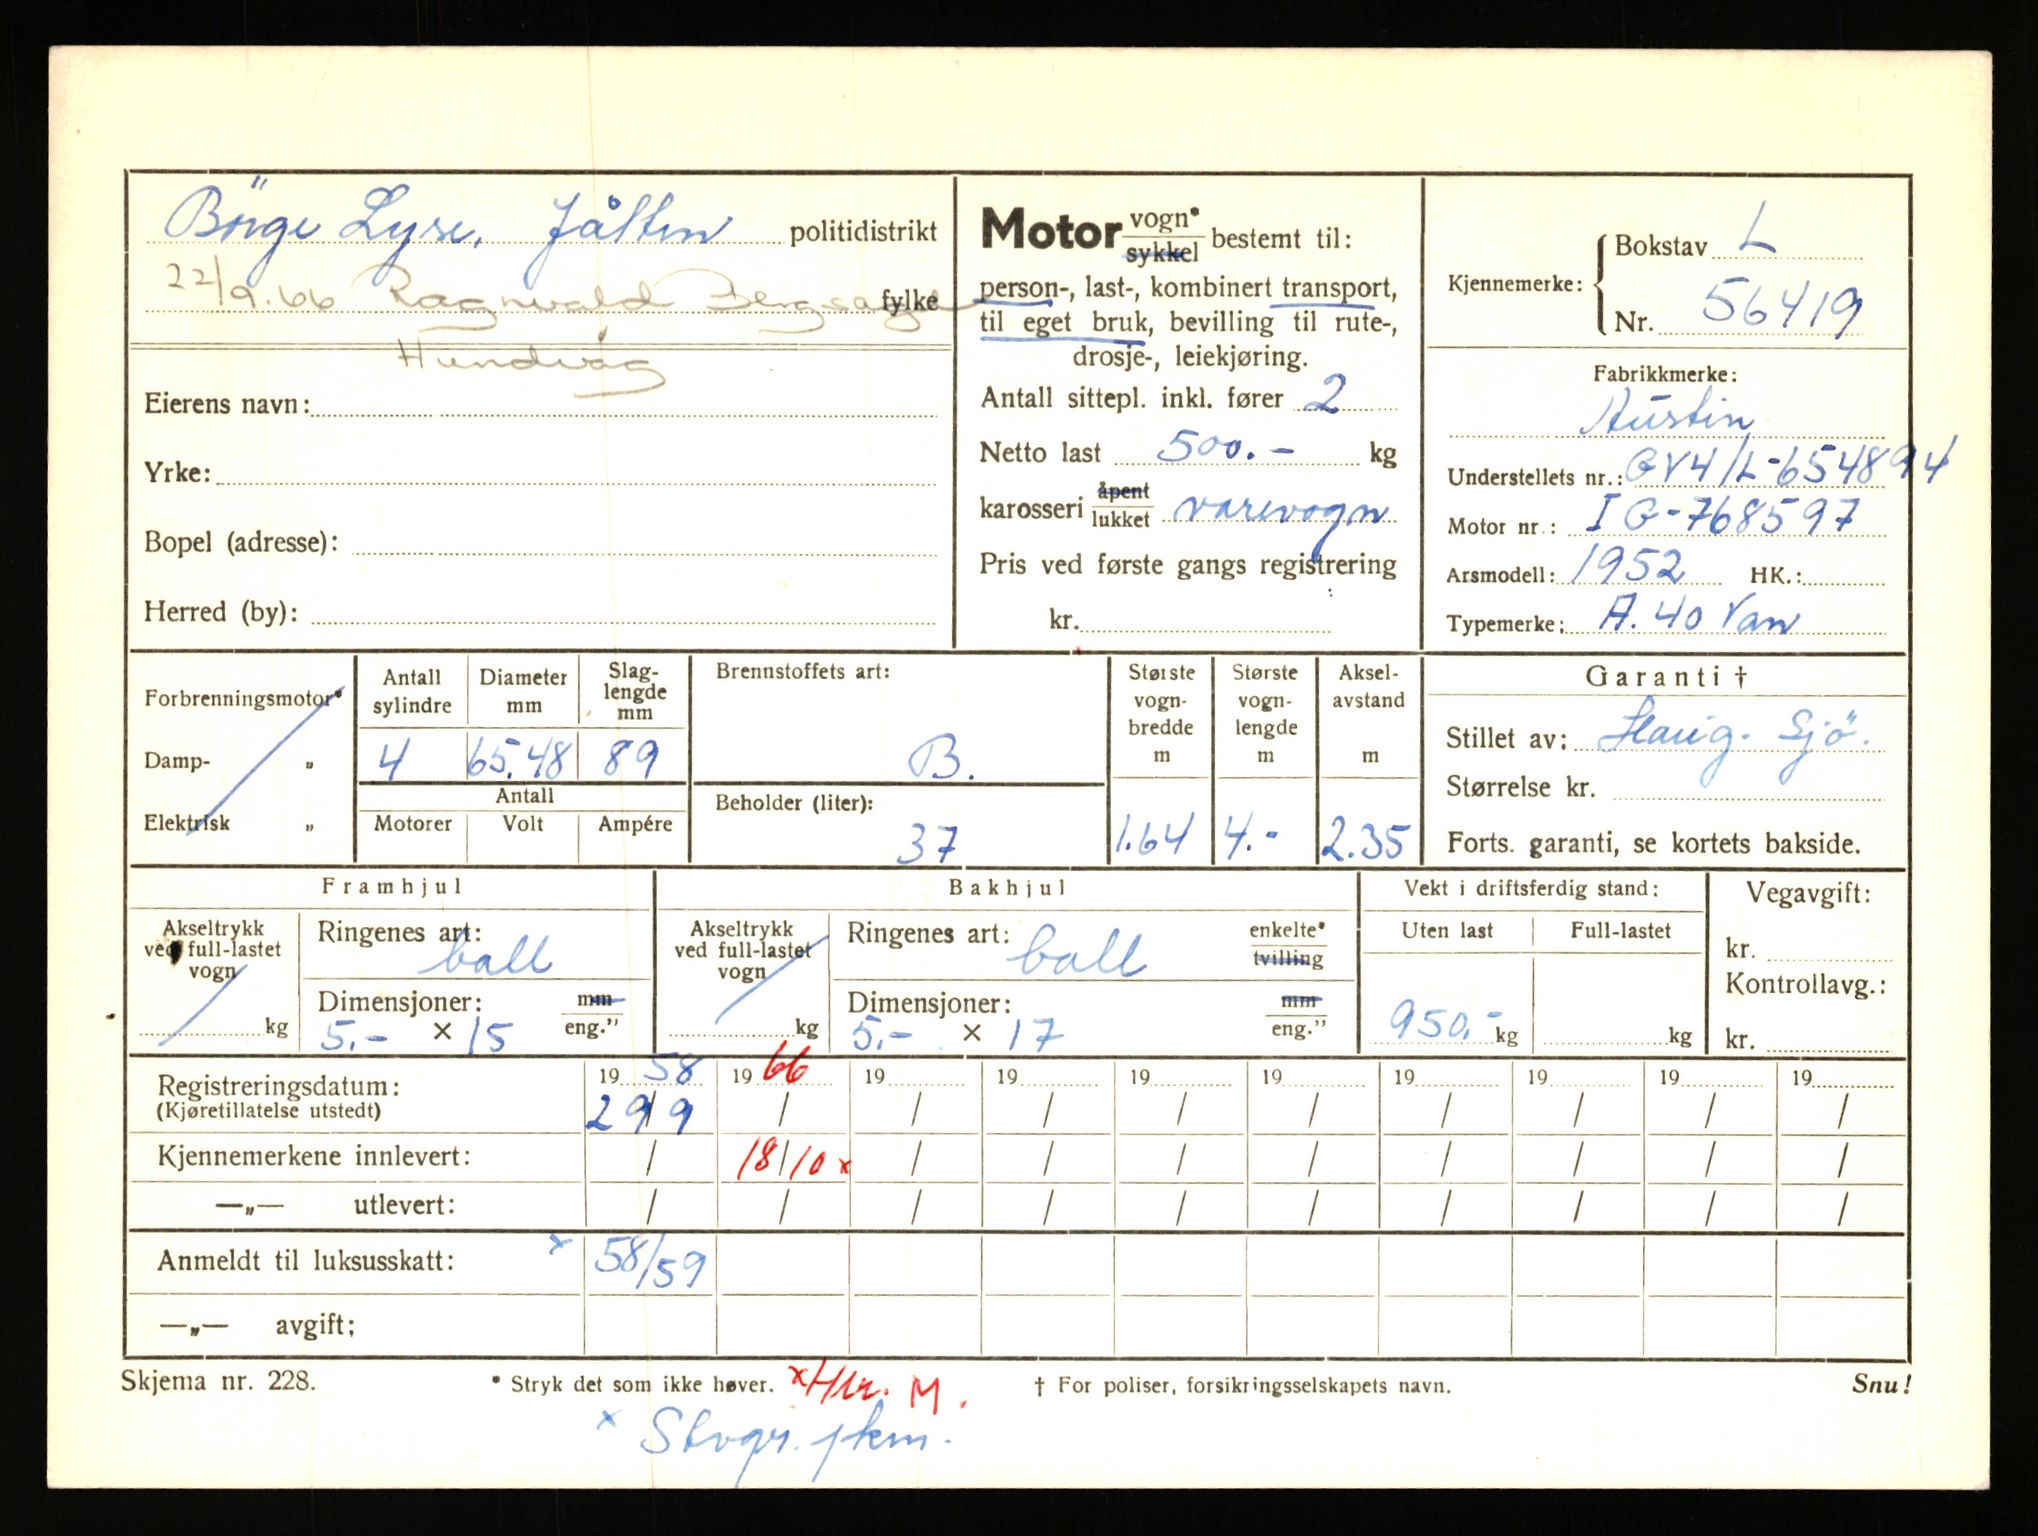 Börge Lyse, Jåttin politidistrikt
22/9.66 Ragnvald Bergsagel fylke
Hundvåg
Eierens navn:
Yrke:
Bopel (adresse):
Herred (by):
Motor vogn* sykkel bestemt til:
person-, last-, kombinert transport,
til eget bruk, bevilling til rute-,
drosje-, leiekjøring.
Antall sittepl. inkl. fører 2
Netto last 500.- kg
karosseri åpent lukket varevogn
Pris ved første gangs registrering
kr.
Kjennemerke: Bokstav L
Nr. 56419
Fabrikkmerke:
Austin
Understellets nr.: GV4/L-654894
Motor nr.: IG-768597
Arsmodell: 1952 HK.:
Typemerke: A.40 Van
Forbrenningsmotor*
Damp- "
Elektrisk "
Antall sylindre Diameter mm Slag-lengde mm
4 65,48 89
Antall
Motorer Volt Ampére
Brennstoffets art:
B.
Beholder (liter):
37
Største vogn-bredde m Største vogn-lengde m Aksel-avstand m
1.64 4.- 2.35
Garanti †
Stillet av: Haug. Sjö.
Størrelse kr.
Forts. garanti, se kortets bakside.
Framhjul
Akseltrykk ved full-lastet vogn
kg
Ringenes art: ball
Dimensjoner: mm eng."
5.- × 15
Bakhjul
Akseltrykk ved full-lastet vogn
kg
Ringenes art: ball enkelte* tvilling
Dimensjoner: mm eng."
5.- × 17
Vekt i driftsferdig stand:
Uten last Full-lastet
950.- kg kg
Vegavgift:
kr.
Kontrollavg.:
kr.
Registreringsdatum: 19 58 19 66 19 19 19 19 19 19 19 19
(Kjøretillatelse utstedt) 29/9 / / / / / / / / /
Kjennemerkene innlevert: / 18/10 x / / / / / / / /
—„— utlevert: / / / / / / / / / /
Anmeldt til luksusskatt: x 58/59
—„— avgift:
Skjema nr. 228. * Stryk det som ikke høver. x Hkr. M. † For poliser, forsikringsselskapets navn. Snu!
x Stvgr. pkm.